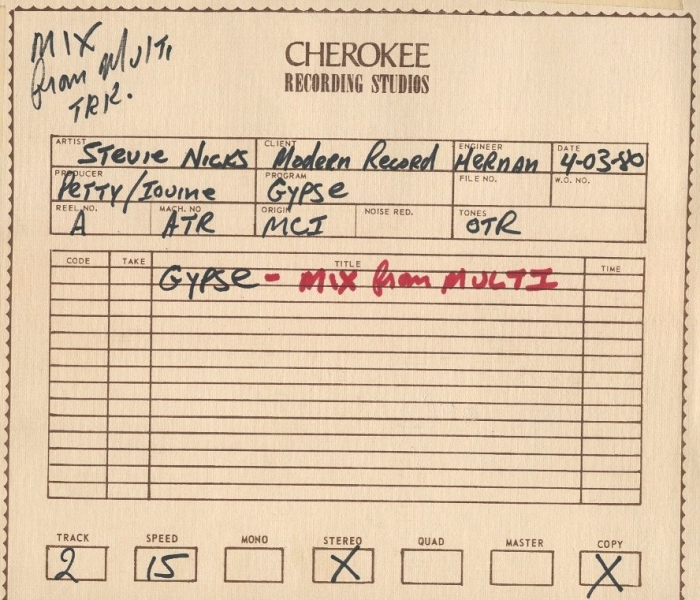 MIX
from MULTI
TRK.
CHEROKEE
RECORDING STUDIOS
ARTIST Stevie Nicks CLIENT Modern Record ENGINEER HERNAN DATE 4-03-80
PRODUCER PETTY/Iovine PROGRAM Gypse FILE NO. W.O. NO.
REEL NO. A MACH. NO ATR ORIGIN MCI NOISE RED. TONES OTR
CODE TAKE TITLE TIME
Gypse - MIX from MULTI
TRACK SPEED MONO STEREO QUAD MASTER COPY
2 15 X X